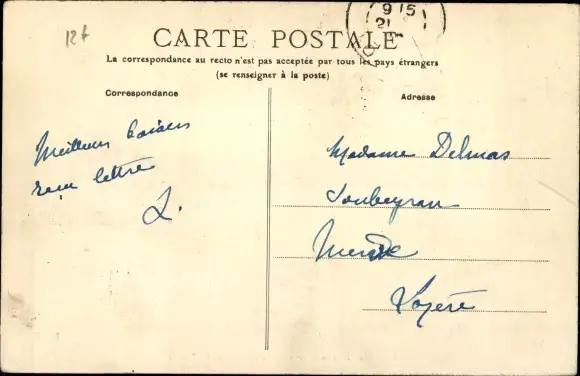 12f
9 15
21
CARTE POSTALE
La correspondance au recto n'est pas acceptée par tous les pays étrangers
(se renseigner à la poste)
Correspondance
Adresse
Meilleurs baisers
reçu lettre
L.
Madame Delmas
Soubeyran
Mende
Lozère